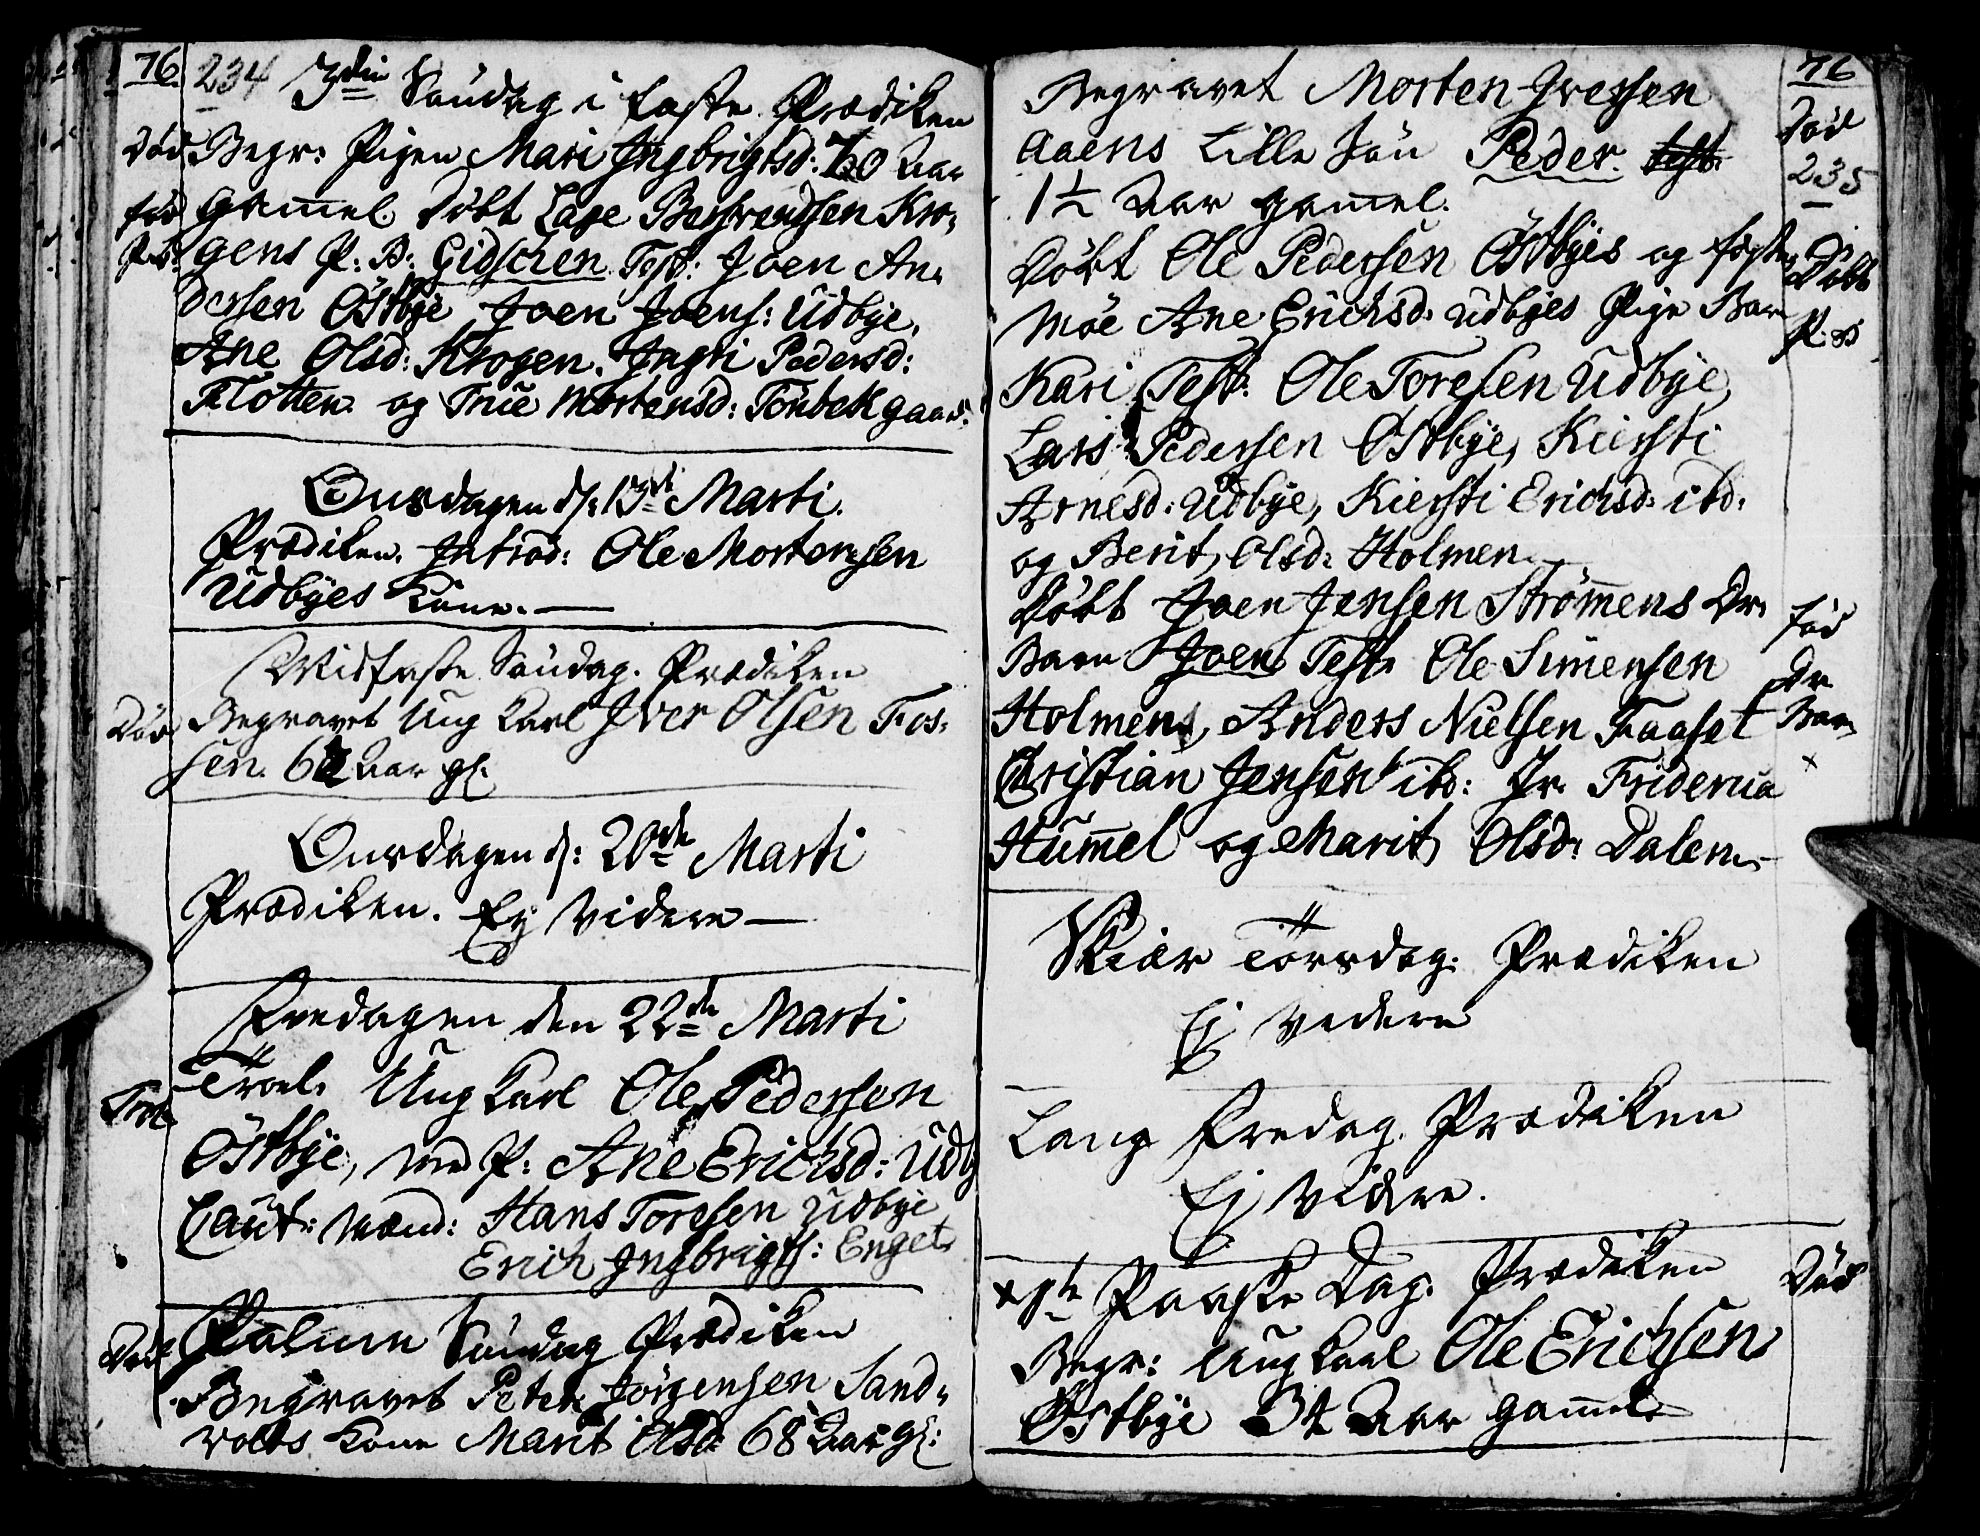 76. 234 3die Søndag i Faste Prædiken
Død Begr: Pigen Mari Ingbrigtsd: 70 Aar
fød gammel Døbt Lage Berhrendsen Kro-
P.B. gens P: B: Gidschen Test: Joen An-
dersen Østbye Joen Joens: Udbye,
Ane Olsd: Krogen. Ingri Pedersd:
Flotten og Mortensd: Tønbekgaar.
Onsdagen d: 13de Marti.
Prædiken. Introd: Ole Mortensen
Udbyes Kone.
Midfaste Søndag. Prædiken
Død Begravet Ung Karl Iver Olsen Fos-
sen. Aar gl.
Onsdagen d: 20de Marti
Prædiken. Ej Videre
Fredagen den 22de Marti
Trol. Troel. Ung Karl Ole Pedersen
Østbye, med P: Ane Erichsd: Udb
Caut: Mænd: Hans Toresen Udbye
Erich Ingbrigts: Enget
Død Palme Søndag Prædiken
Begravet Peter Jörgensen Sand-
volds Kone Marit Olsd: 68 Aar gl:
76
Begravet Morten Iversen
Død
Aaens Lille Søn Peder. Test:
235
1½ Aar gammel.
Døbt Ole Pedersen Østbyes og fæste
Døbt
Møe Ane Erichsd: Udbyes Pige Barn
P. B
Kari Test: Ole Toresen Udbye,
Lars Pedersen Østbye, Kiersti
Arnesd: Udbye, Kiersti Erichsd: ibd:
og Berit Olsd: Holmen.
Døbt Joen Jensen Strømmens Dr.
fød
Barn Joen Test: Ole Simensen
Dr
Holmens, Anders Nielsen Faaset
Barn
Christian Jensen ibd: Jr. Friderica
x
Hummel og Marit Olsd: Dalen.
Skiær Torsdag: Prædiken
Ej Videre
Lang Fredag. Prædiken
Ej Videre.
x 1te Paaske Dag. Prædiken
Død
Begr: Ung Karl Ole Erichsen
Østbye Aar gammel.